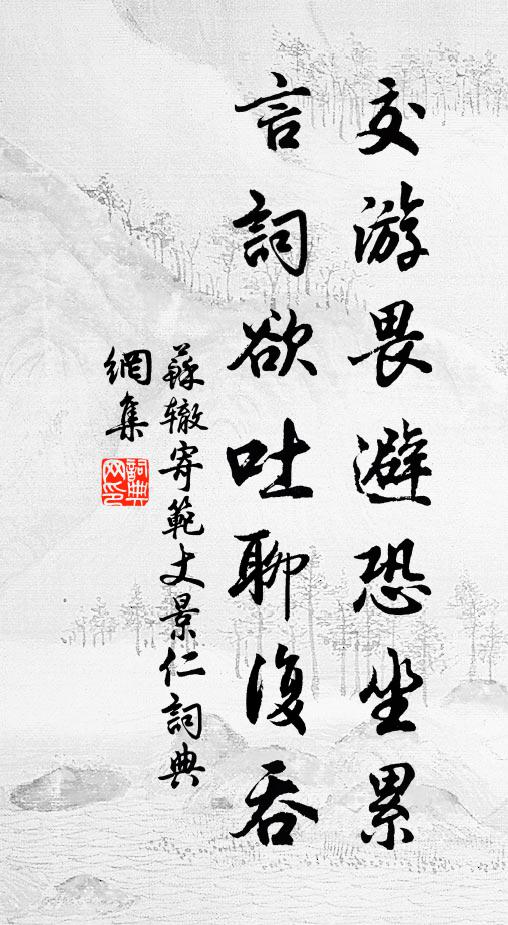 交游畏避恐坐累
言詞欲吐聊復吞
蘇轍寄範丈景仁詞典
網集
詞典
网印